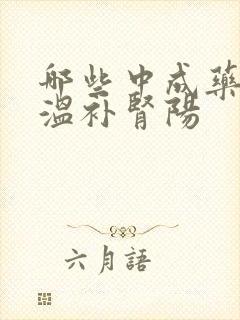 哪些中成藥
溫补腎陽
六月語